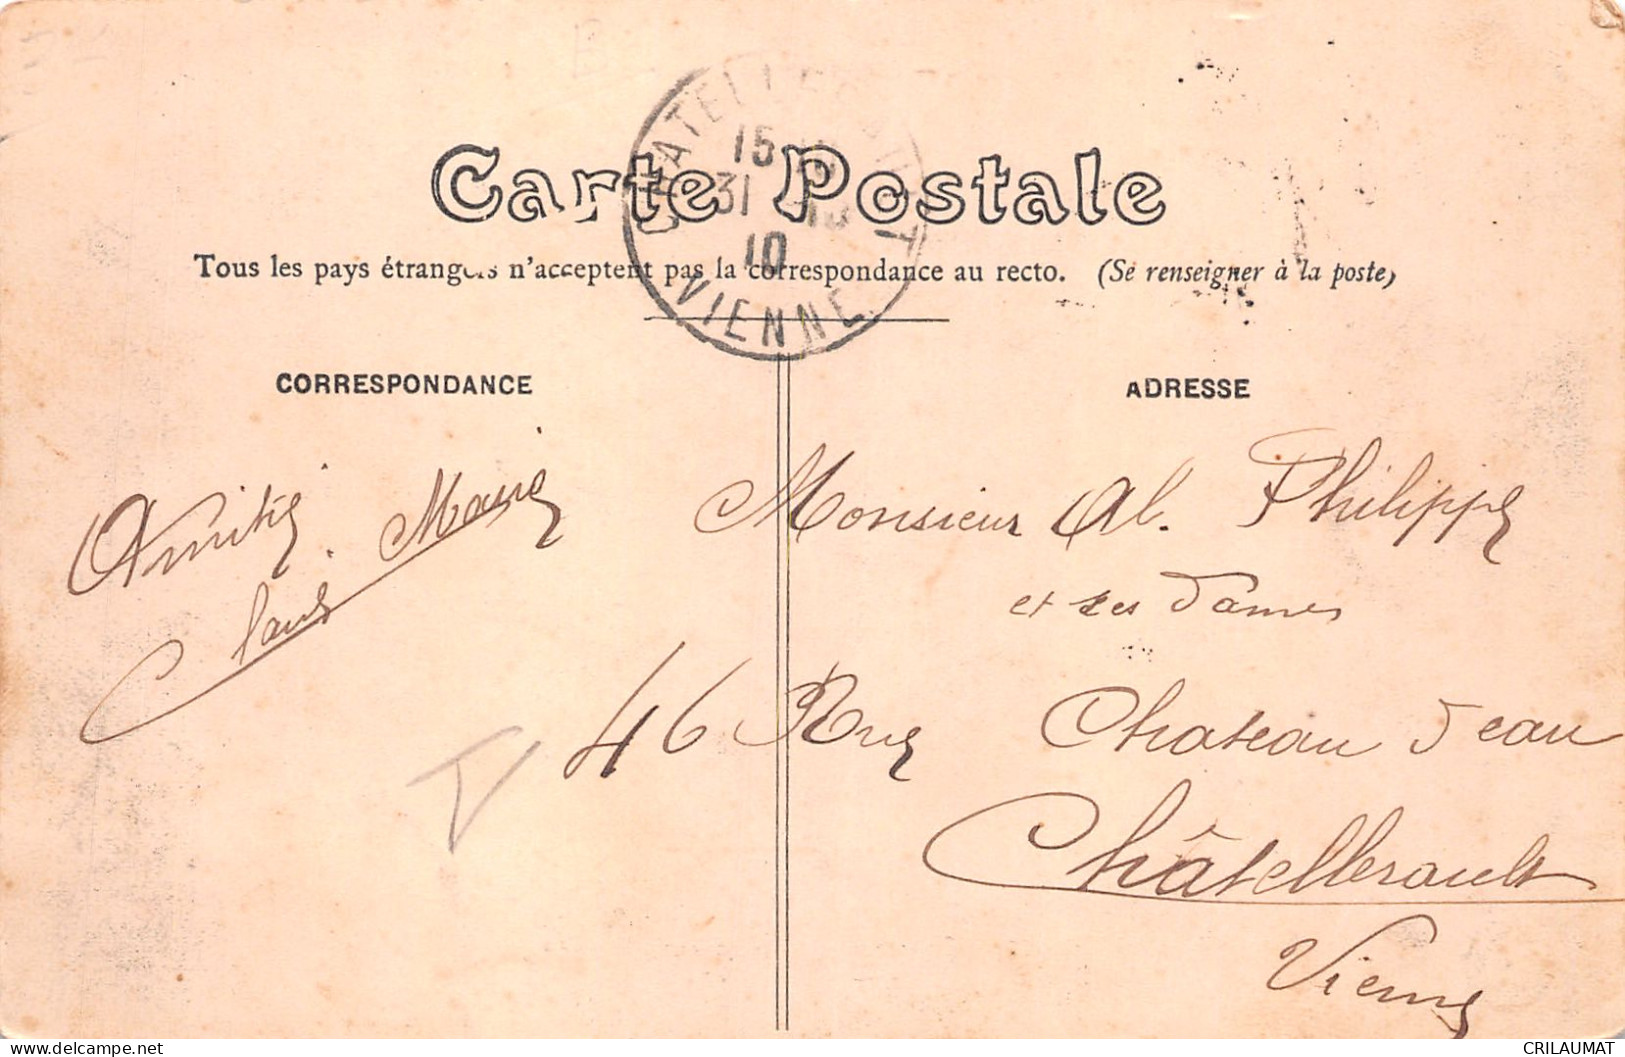 Carte Postale
Tous les pays étrangers n'acceptent pas la correspondance au recto. (Se renseigner à la poste)
CHATELLERAULT
15
31 -10
10
VIENNE
CORRESPONDANCE
Amitiés
Marie
ADRESSE
Monsieur Al. Philippe
et ses Dames
46 Rue Chateau d'eau
Châtellerault
Vienne
CRILAUMAT